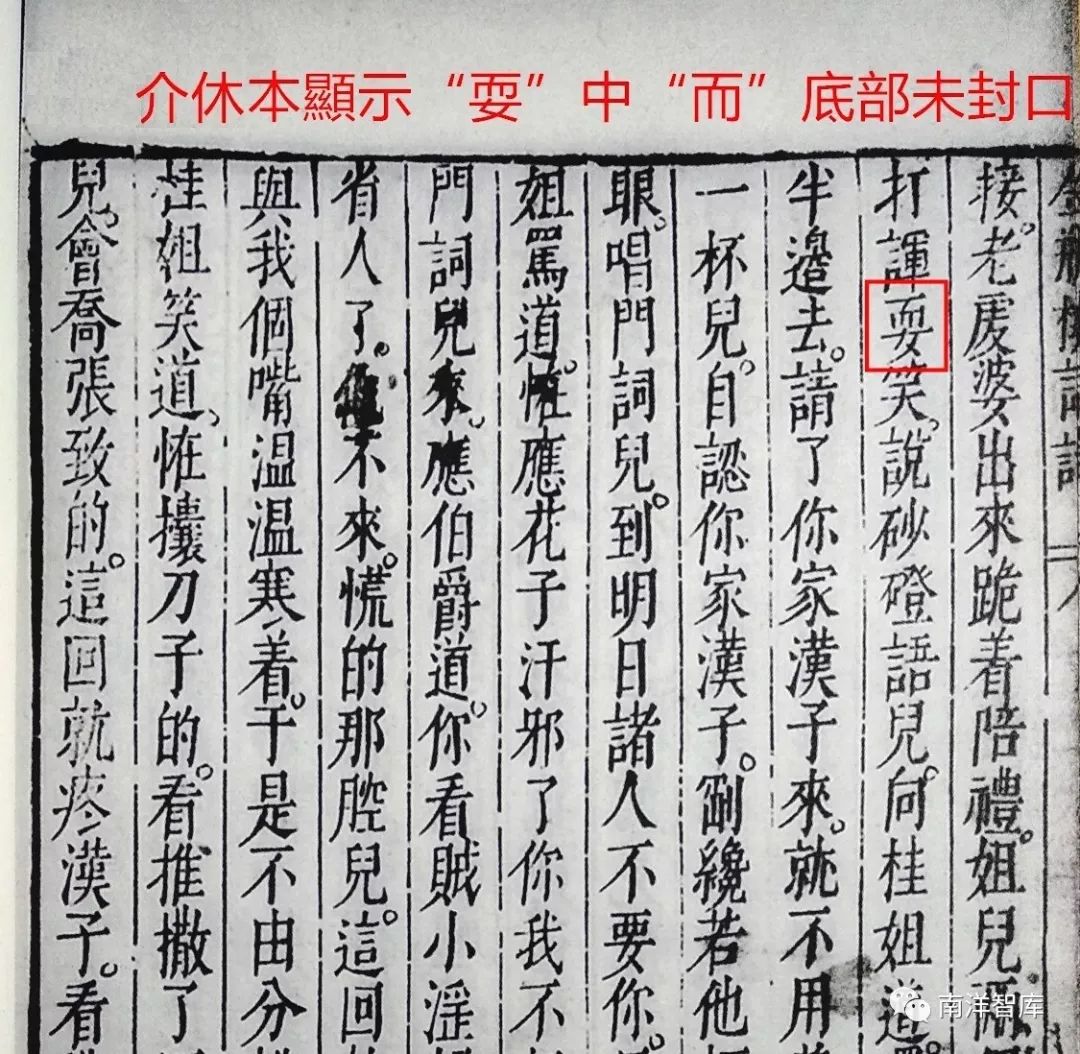 介休本顯示“耍”中“而”底部未封口
金瓶梅詞話
接。老虔婆出來跪着陪禮。姐兒
打諢耍笑。說砂磴語兒。向桂姐道
半邊去。請了你家漢子來。就不用
一杯兒。自認你家漢子。剛纔若他
眼。唱門詞兒。到明日諸人不要你。
姐罵道。怪應花子汗邪了你我不
門詞兒來。應伯爵道。你看賊小淫
省人了。他不來。慌的那腔兒。這回
與我個嘴溫溫寒着。于是不由分
桂姐笑道。怪攮刀子的。看推撒了
兒。會喬張致的。這回就疼漢子。看
南洋智库